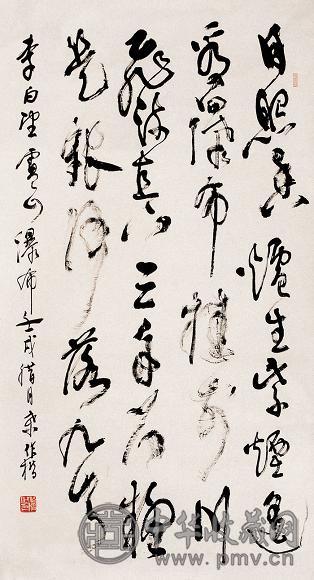 日照香爐生紫煙遙
看瀑布挂前川
飛流直下三千尺疑
是銀河落九天
李白望廬山瀑布 壬戌腊月
中华收藏网
www.pmv.cn